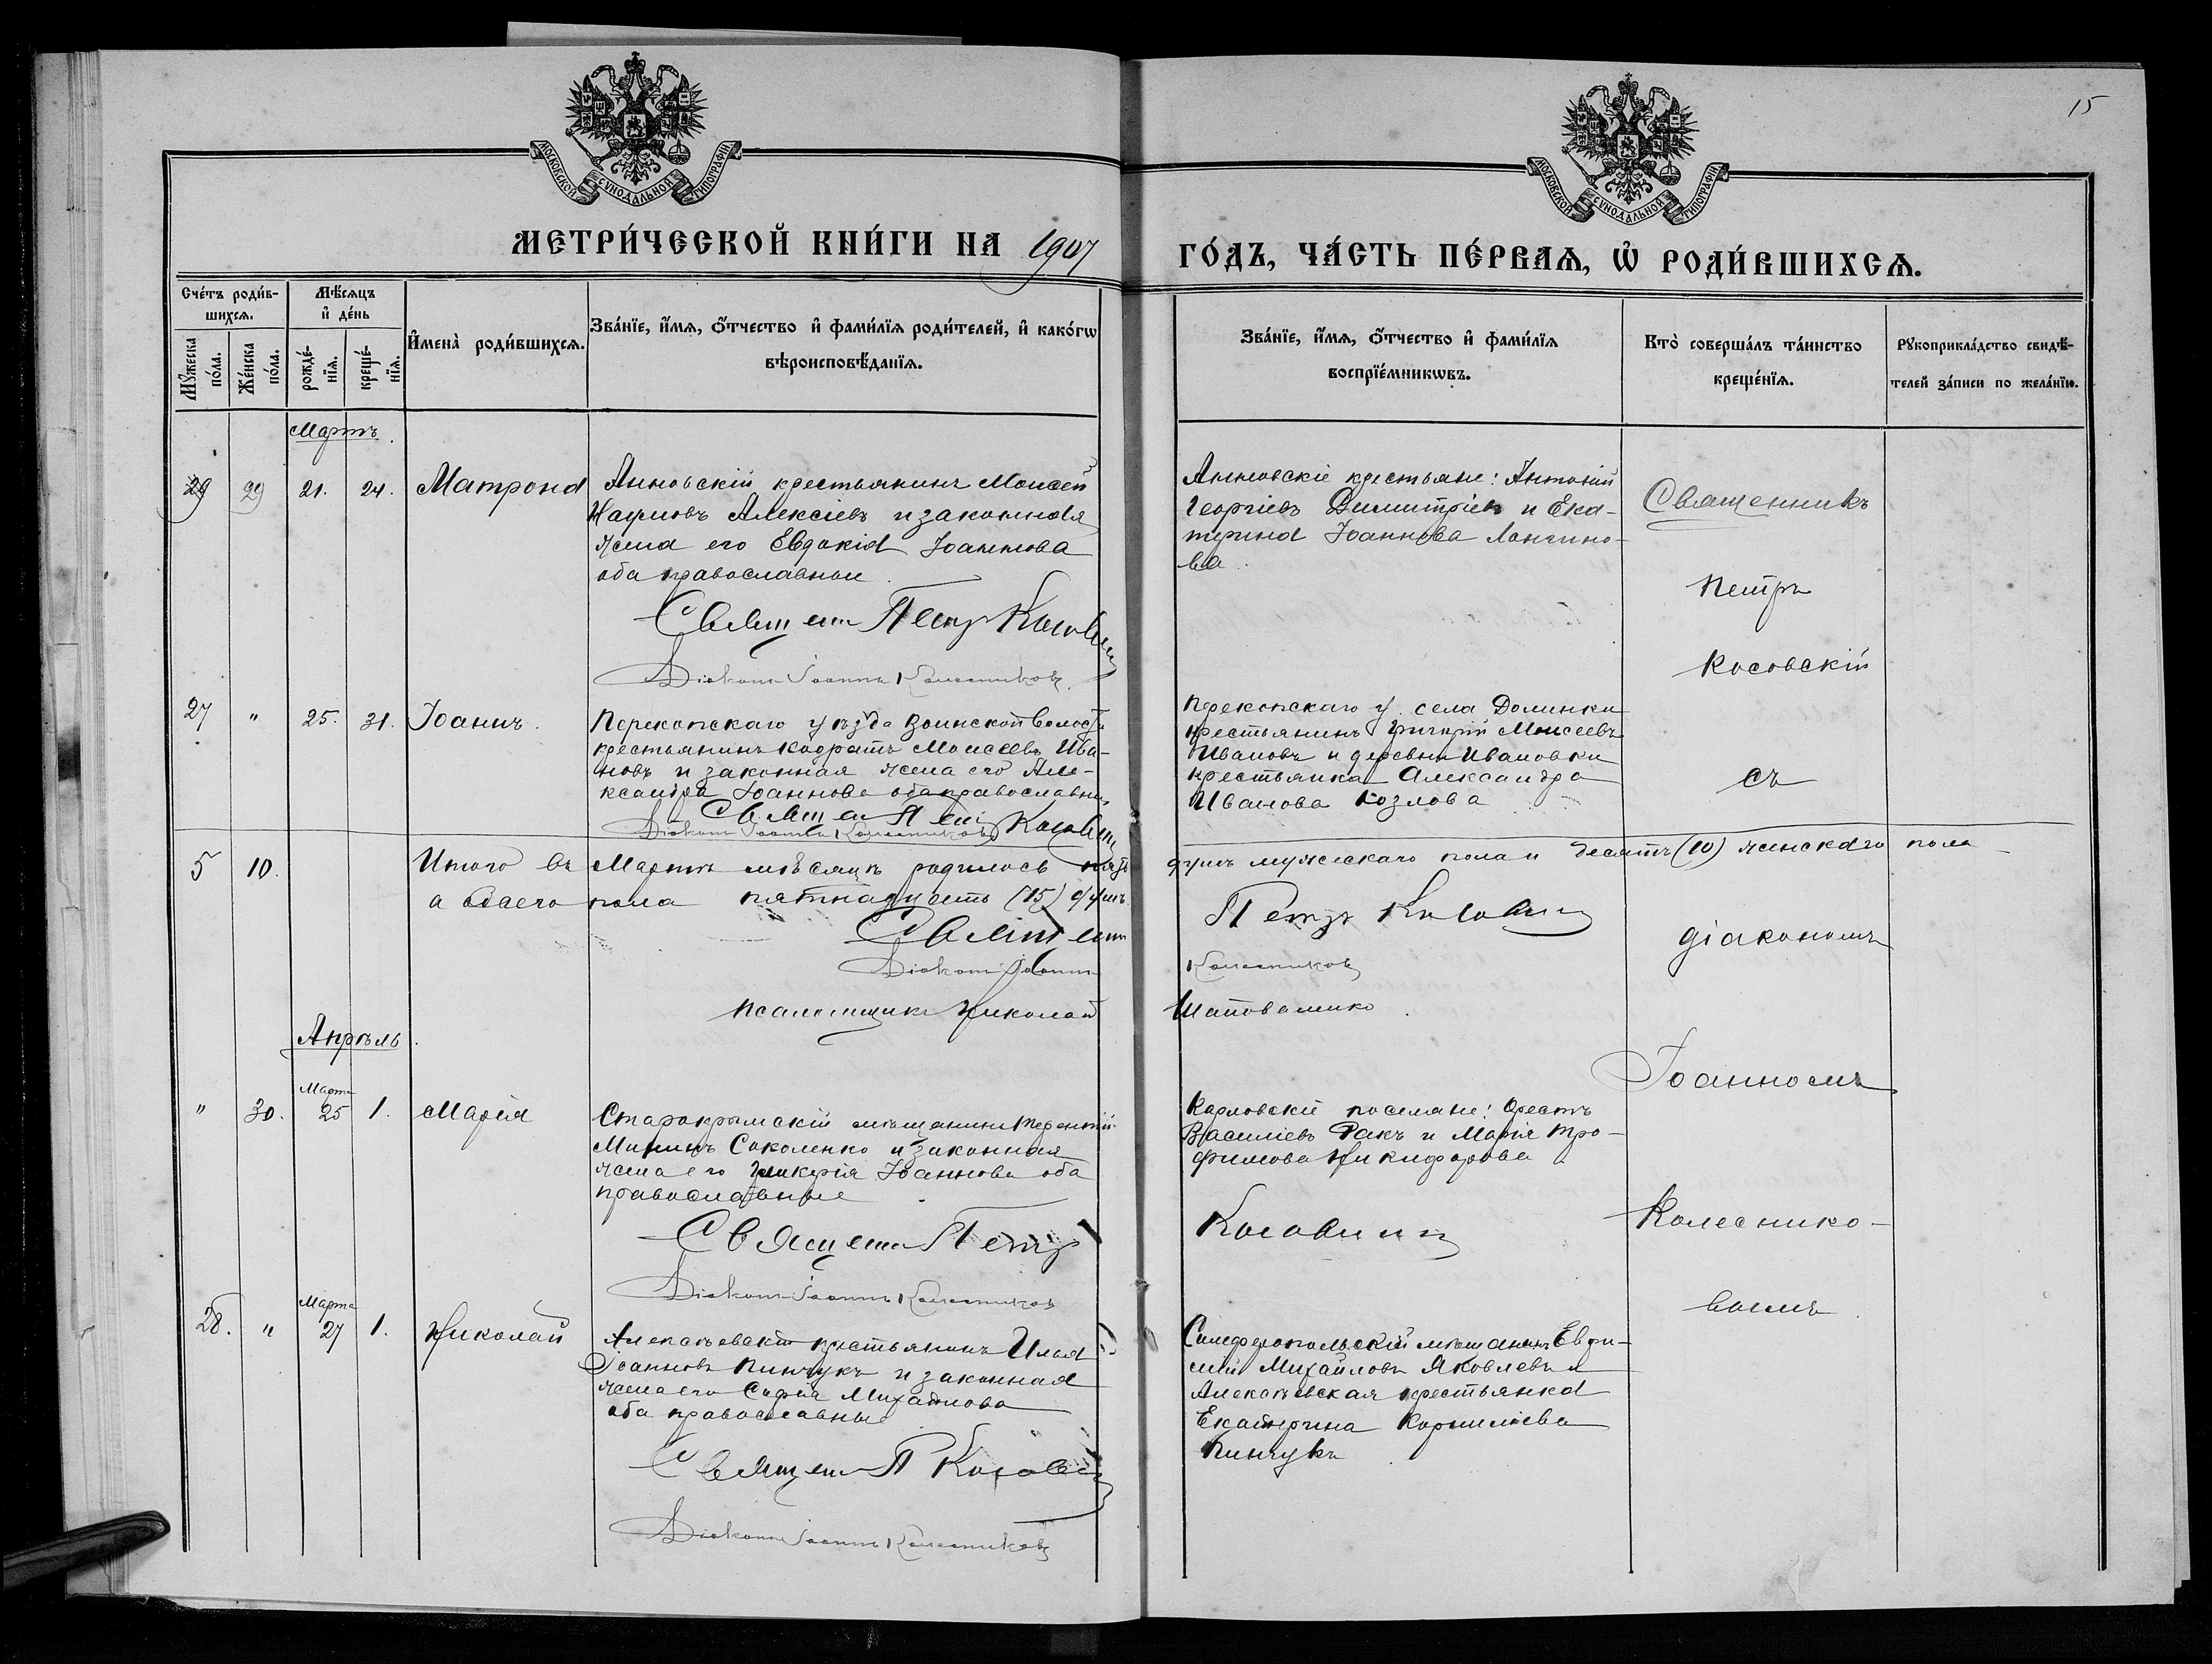 15
МОСКОВСКОЙ СУНОДАЛЬНОЙ ТИПОГРАФІИ
МОСКОВСКОЙ СУНОДАЛЬНОЙ ТИПОГРАФІИ
МЕТРИ́ЧЕСКОЙ КНИ́ГИ НА 1907
ГО́ДЪ, ЧА́СТЬ ПЕ́РВАѦ, Ѡ҆ РОДИ́ВШИХСѦ.
Сче́тъ роди́в-
шихсѧ.
Мѣ́сѧцъ
и҆ де́нь
Мꙋ́жеска
по́ла.
Же́нска
по́ла.
рожде́-
нїѧ.
креще́-
нїѧ.
И҆мена̀ роди́вшихсѧ.
Зва́нїе, и҆́мѧ, ѻ҆́тчество и҆ фами́лїѧ роди́телей, и҆ како́гѡ
вѣроисповѣ́данїѧ.
Зва́нїе, и҆́мѧ, ѻ҆́тчество и҆ фами́лїѧ
воспрїе́мникѡвъ.
Кто̀ соверша́лъ та́инство
креще́нїѧ.
Рꙋкоприкла́дство свидѣ́-
телей за́писи по жела́нїю.
Мартъ.
29 29 21. 24. Матрона
Анновскій крестьянинъ Моисей
Наумовъ Алексіевъ и законная
жена его Евдокія Іоаннова
оба православные.
Священ Петръ Косовскій
Діаконъ Іоаннъ Колесниковъ.
Анновскіе крестьяне: Антоній
Георгіевъ Димитріевъ и Ека-
терина Іоаннова Лончино-
ва.
Священникъ
Петръ
Косовскій
съ
діакономъ
Іоанномъ
Колеснико-
вымъ.
27 " 25. 31. Іоаннъ.
Перекопскаго уѣзда Воинской волости
крестьянинъ Кодратъ Моисеевъ Ива-
новъ и законная жена его Але-
ксандра Іоаннова оба православны.
Священ Петръ Косовскій
Діаконъ Іоаннъ Колесниковъ
Перекопскаго у. села Долинки
крестьянинъ Григорій Моисеевъ
Ивановъ и деревни Ивановки
крестьянка Александра
Иванова Козлова
5 10. Итого въ Мартѣ мѣсяцѣ родилось пять душъ мужескаго пола и десять (10) женскаго пола
а обоего пола пятнадцать (15) душъ
Священ Петръ Косовскій
Діаконъ Іоаннъ Колесниковъ
Псаломщикъ Николай Шаповаленко.
Апрѣль.
Марта
" 30. 25 1. Марія
Старокрымскій мѣщанинъ Терентій
Мининъ Соколенко и законная
жена его Гликерія Іоаннова оба
православные.
Священ Петръ Косовскій
Діаконъ Іоаннъ Колесниковъ
Карловскіе поселяне: Орестъ
Василіевъ Ракъ и Марія Тро-
фимова Никифорова.
Марта
28. " 27 1. Николай
Алексѣевскій крестьянинъ Илья
Іоанновъ Пинчукъ и законная
жена его Софія Михайлова
оба православные
Священ П Косовскій
Діаконъ Іоаннъ Колесниковъ
Симферопольскій мѣщанинъ Евфи-
мій Михайловъ Яковлевъ и
Алексѣевская крестьянка
Екатерина Корниліева
Пинчукъ.